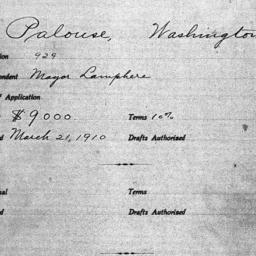 Palouse, Washington
ion 929
ondent Mayor Lamphere
f Application
$9000. Terms 10%
d March 21, 1910 Drafts Authorized
nal Terms
d Drafts Authorized